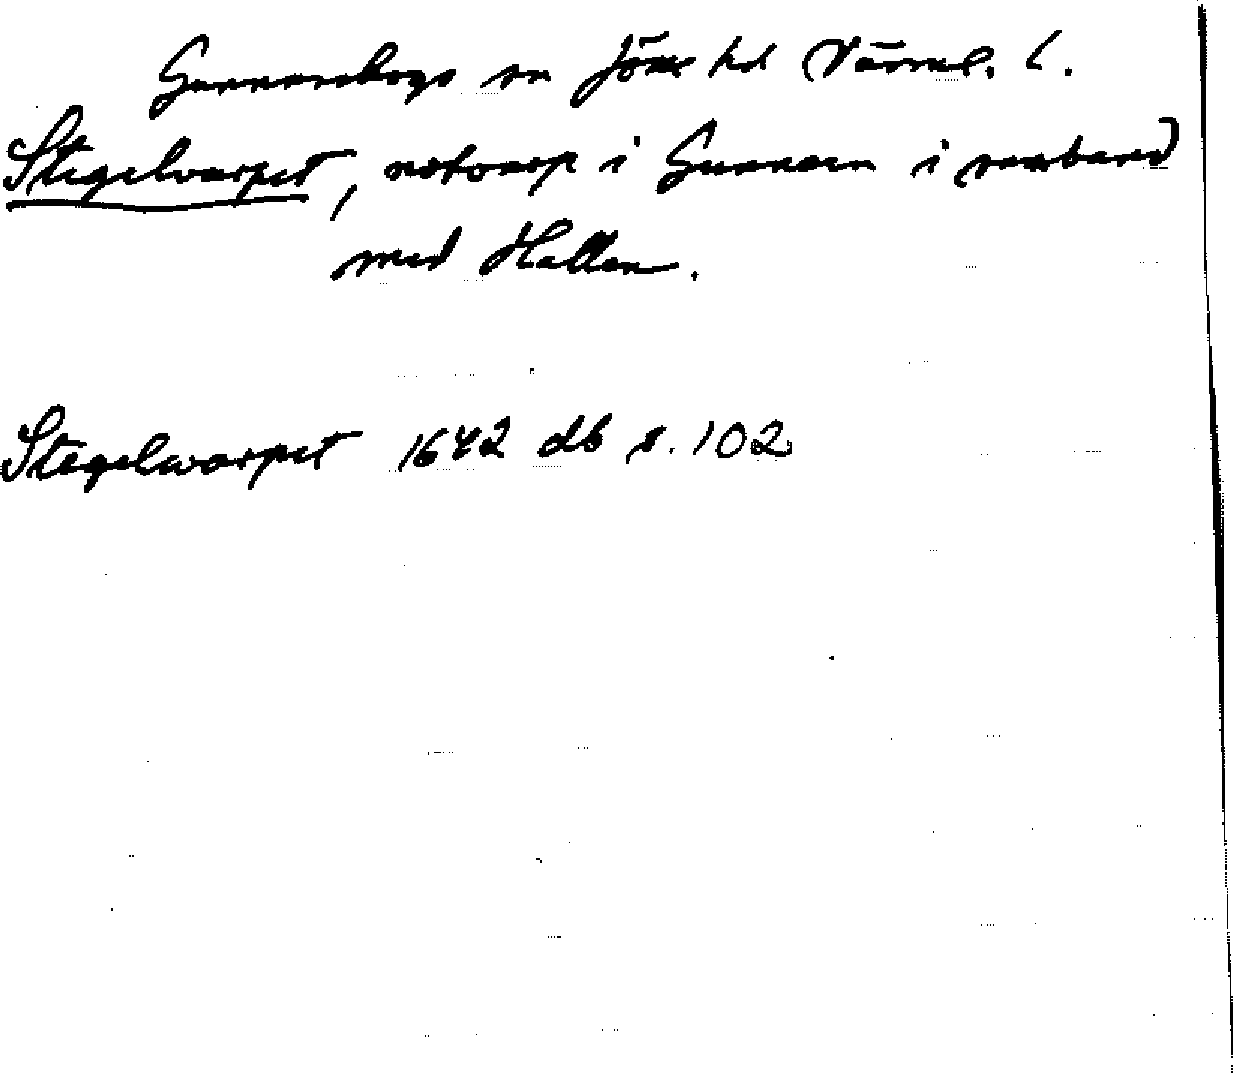 Gunnarskogs sn Jösse hd Värml. l.
Stegelvarpet, notvarp i Gunnern i samband
med Hallan.
Stegelwarpet 1642 db s. 102